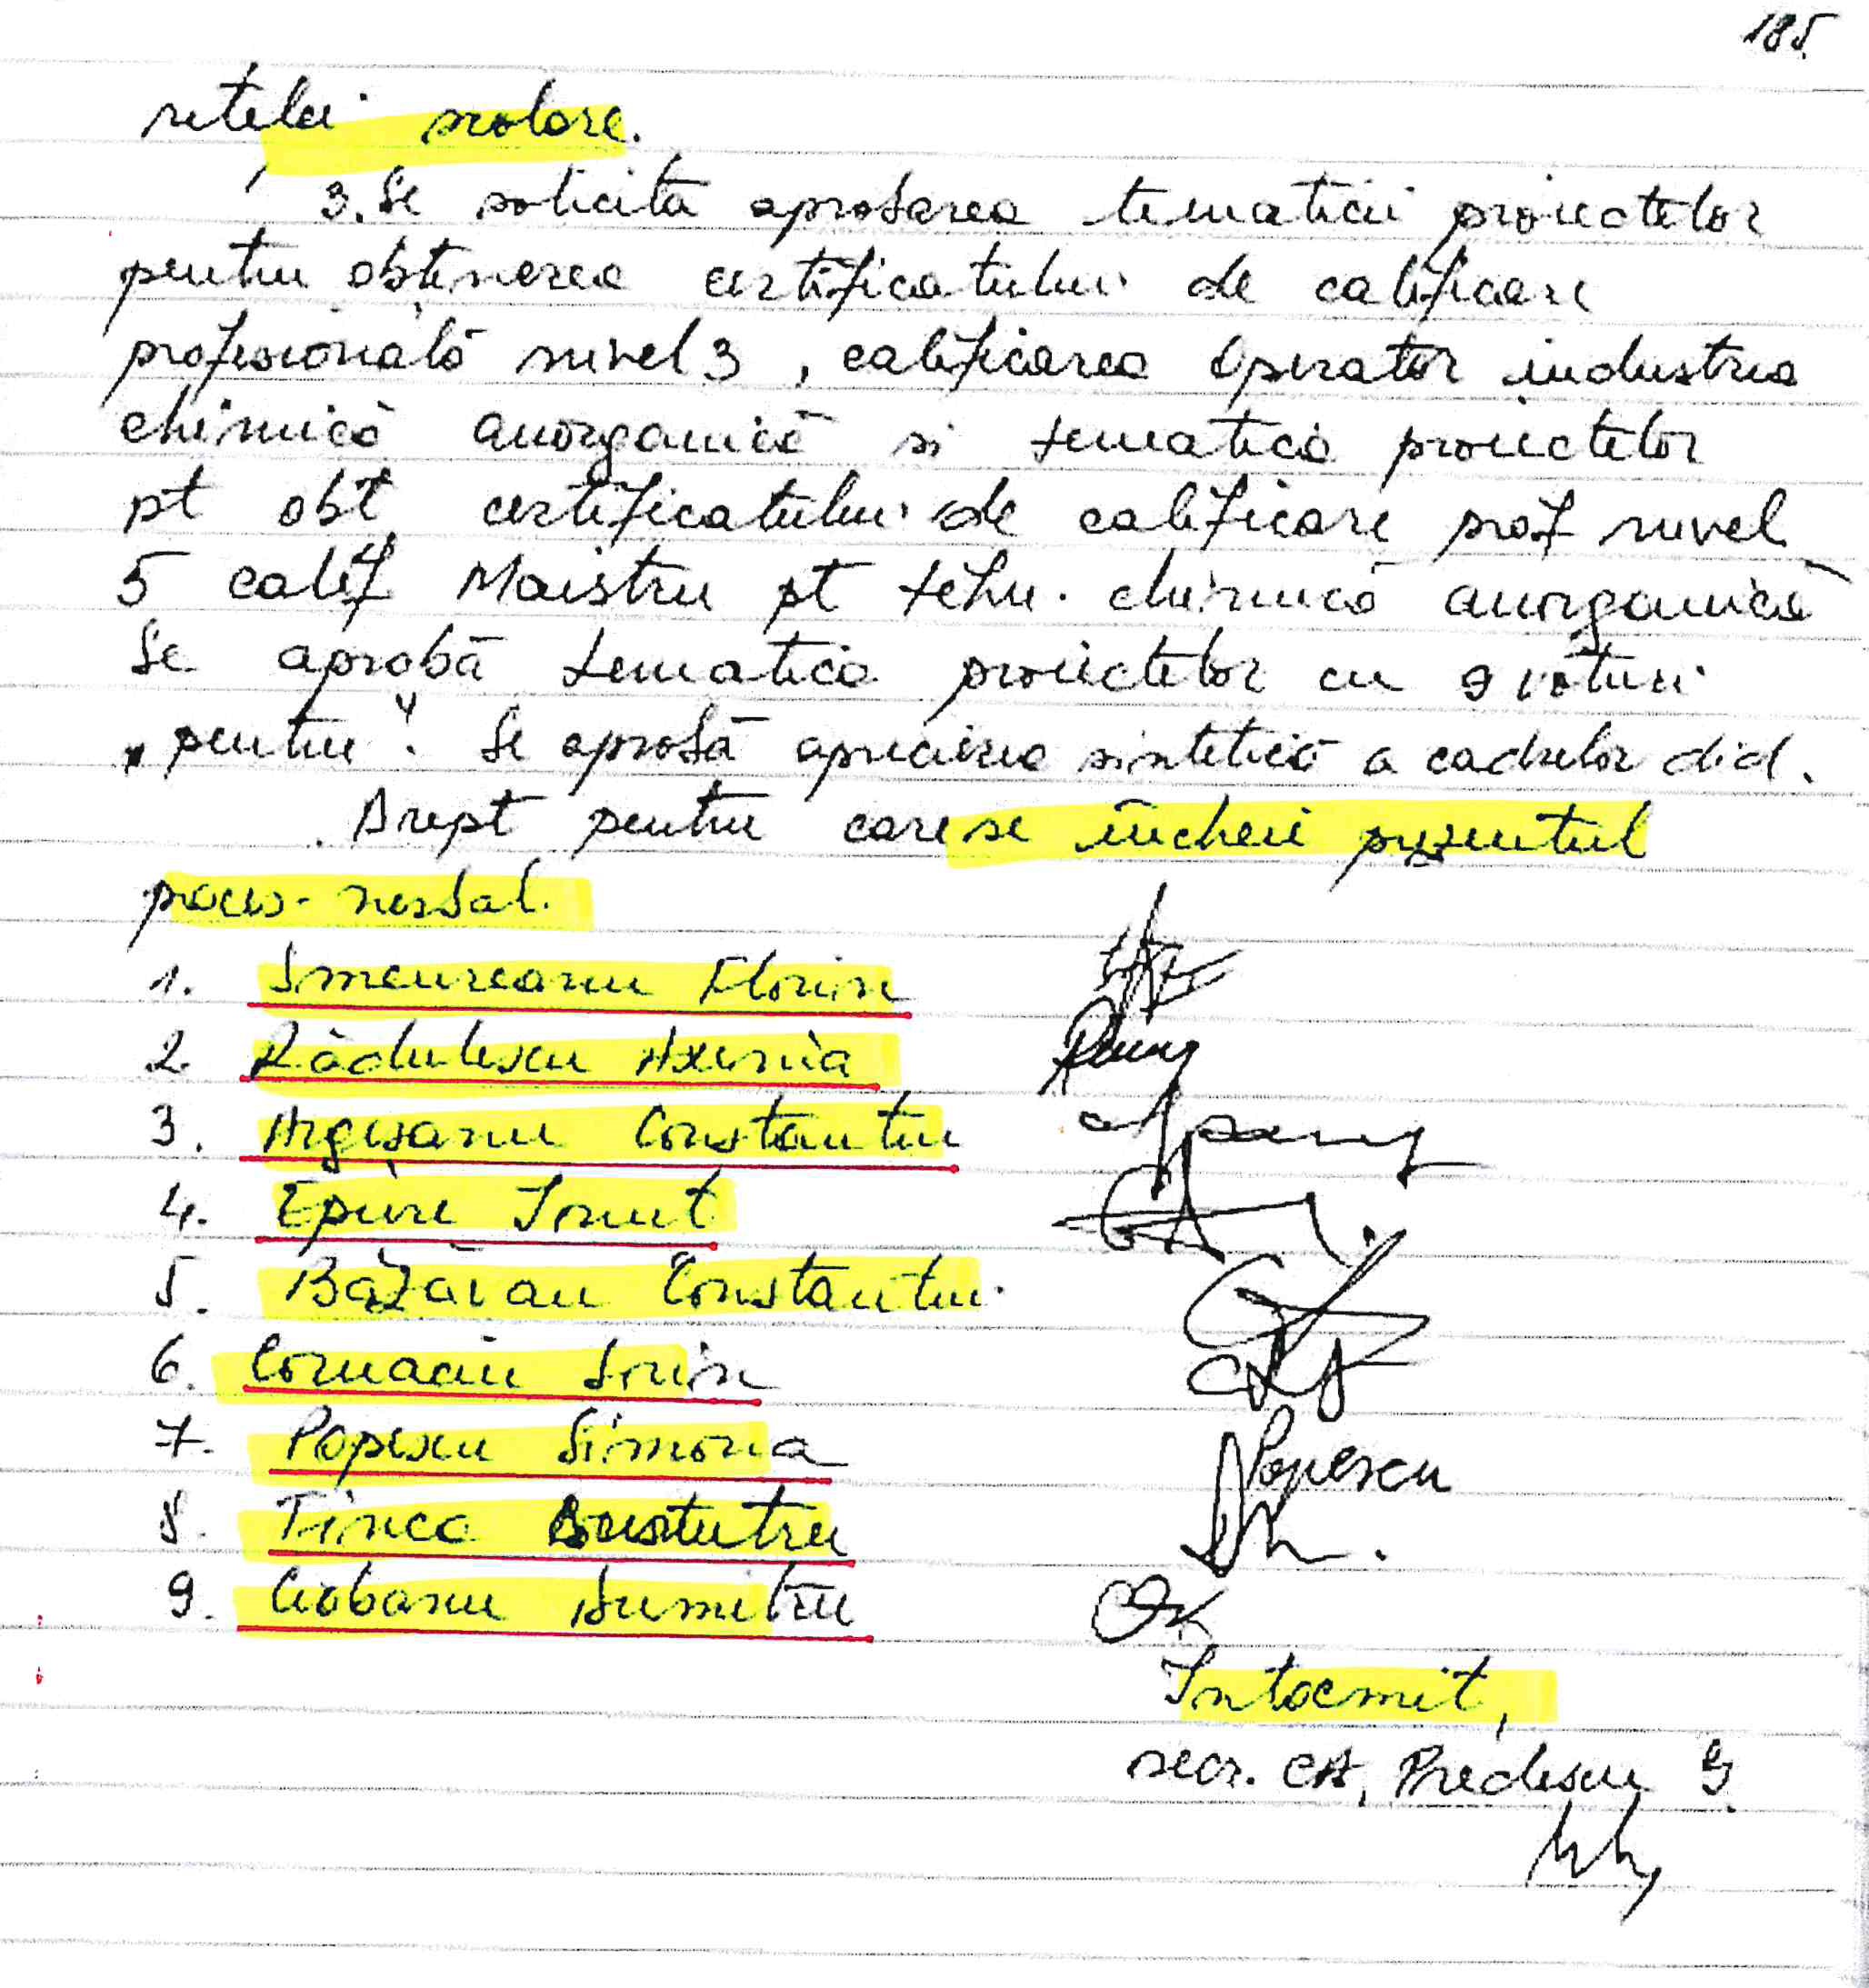 185
rețelei scolare.
3. Se solicită aprobarea tematicii proiectelor
pentru obținerea certificatului de calificare
profesională nivel 3, calificarea Operator industria
chimică anorganică si tematica proiectelor
pt obț certificatului de calificare prof nivel
5 calif Maistru pt tehn. chimică anorganică
Se aprobă tematica proiectelor cu 9 voturi
„pentru". Se aprobă aprecierea sintetică a cadrelor did.
Drept pentru care se încheie prezentul
proces-verbal.
1. Smeureanu Florin
2. Rădulescu Axenia
3. Argeșanu Constantin
4. Epure Ionut
5. Băzăvan Constantin
6. Cornaciu Sorin
7. Popescu Simona
Popescu
8. Tinca Dumitru
9. Ciobanu Dumitru
Intocmit,
secr. CA, Predescu G.